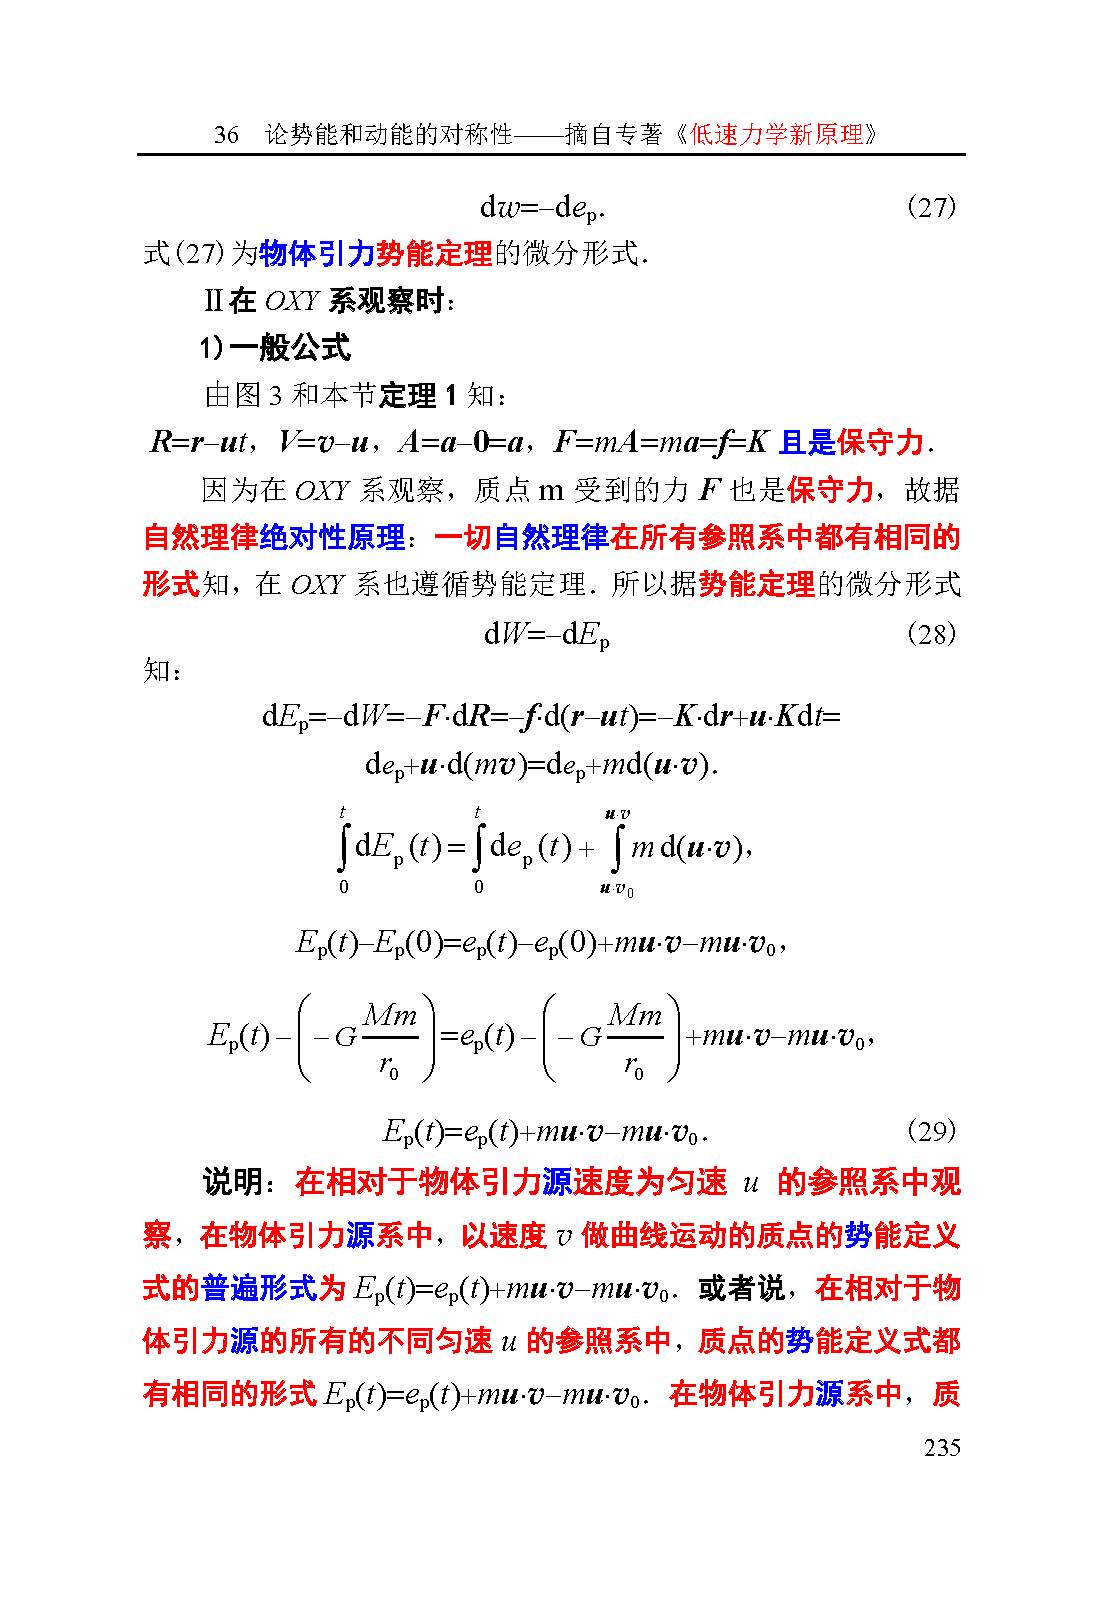 36 论势能和动能的对称性——摘自专著《低速力学新原理》
dw=–de_p. (27)
式(27)为物体引力势能定理的微分形式.
Ⅱ在 OXY 系观察时:
1)一般公式
由图 3 和本节定理 1 知:
R=r–ut, V=v–u, A=a–0=a, F=mA=ma=f=K 且是保守力.
因为在 OXY 系观察, 质点 m 受到的力 F 也是保守力, 故据
自然理律绝对性原理: 一切自然理律在所有参照系中都有相同的
形式知, 在 OXY 系也遵循势能定理. 所以据势能定理的微分形式
dW=–dE_p (28)
知:
dE_p=–dW=–F·dR=–f·d(r–ut)=–K·dr+u·Kdt=
de_p+u·d(mv)=de_p+md(u·v).
∫_0^t dE_p(t)=∫_0^t de_p(t)+∫_{u·v_0}^{u·v} md(u·v),
E_p(t)–E_p(0)=e_p(t)–e_p(0)+mu·v–mu·v_0,
E_p(t)–(–G Mm/r_0)=e_p(t)–(–G Mm/r_0)+mu·v–mu·v_0,
E_p(t)=e_p(t)+mu·v–mu·v_0. (29)
说明: 在相对于物体引力源速度为匀速 u 的参照系中观
察, 在物体引力源系中, 以速度 v 做曲线运动的质点的势能定义
式的普遍形式为 E_p(t)=e_p(t)+mu·v–mu·v_0. 或者说, 在相对于物
体引力源的所有的不同匀速 u 的参照系中, 质点的势能定义式都
有相同的形式 E_p(t)=e_p(t)+mu·v–mu·v_0. 在物体引力源系中, 质
235